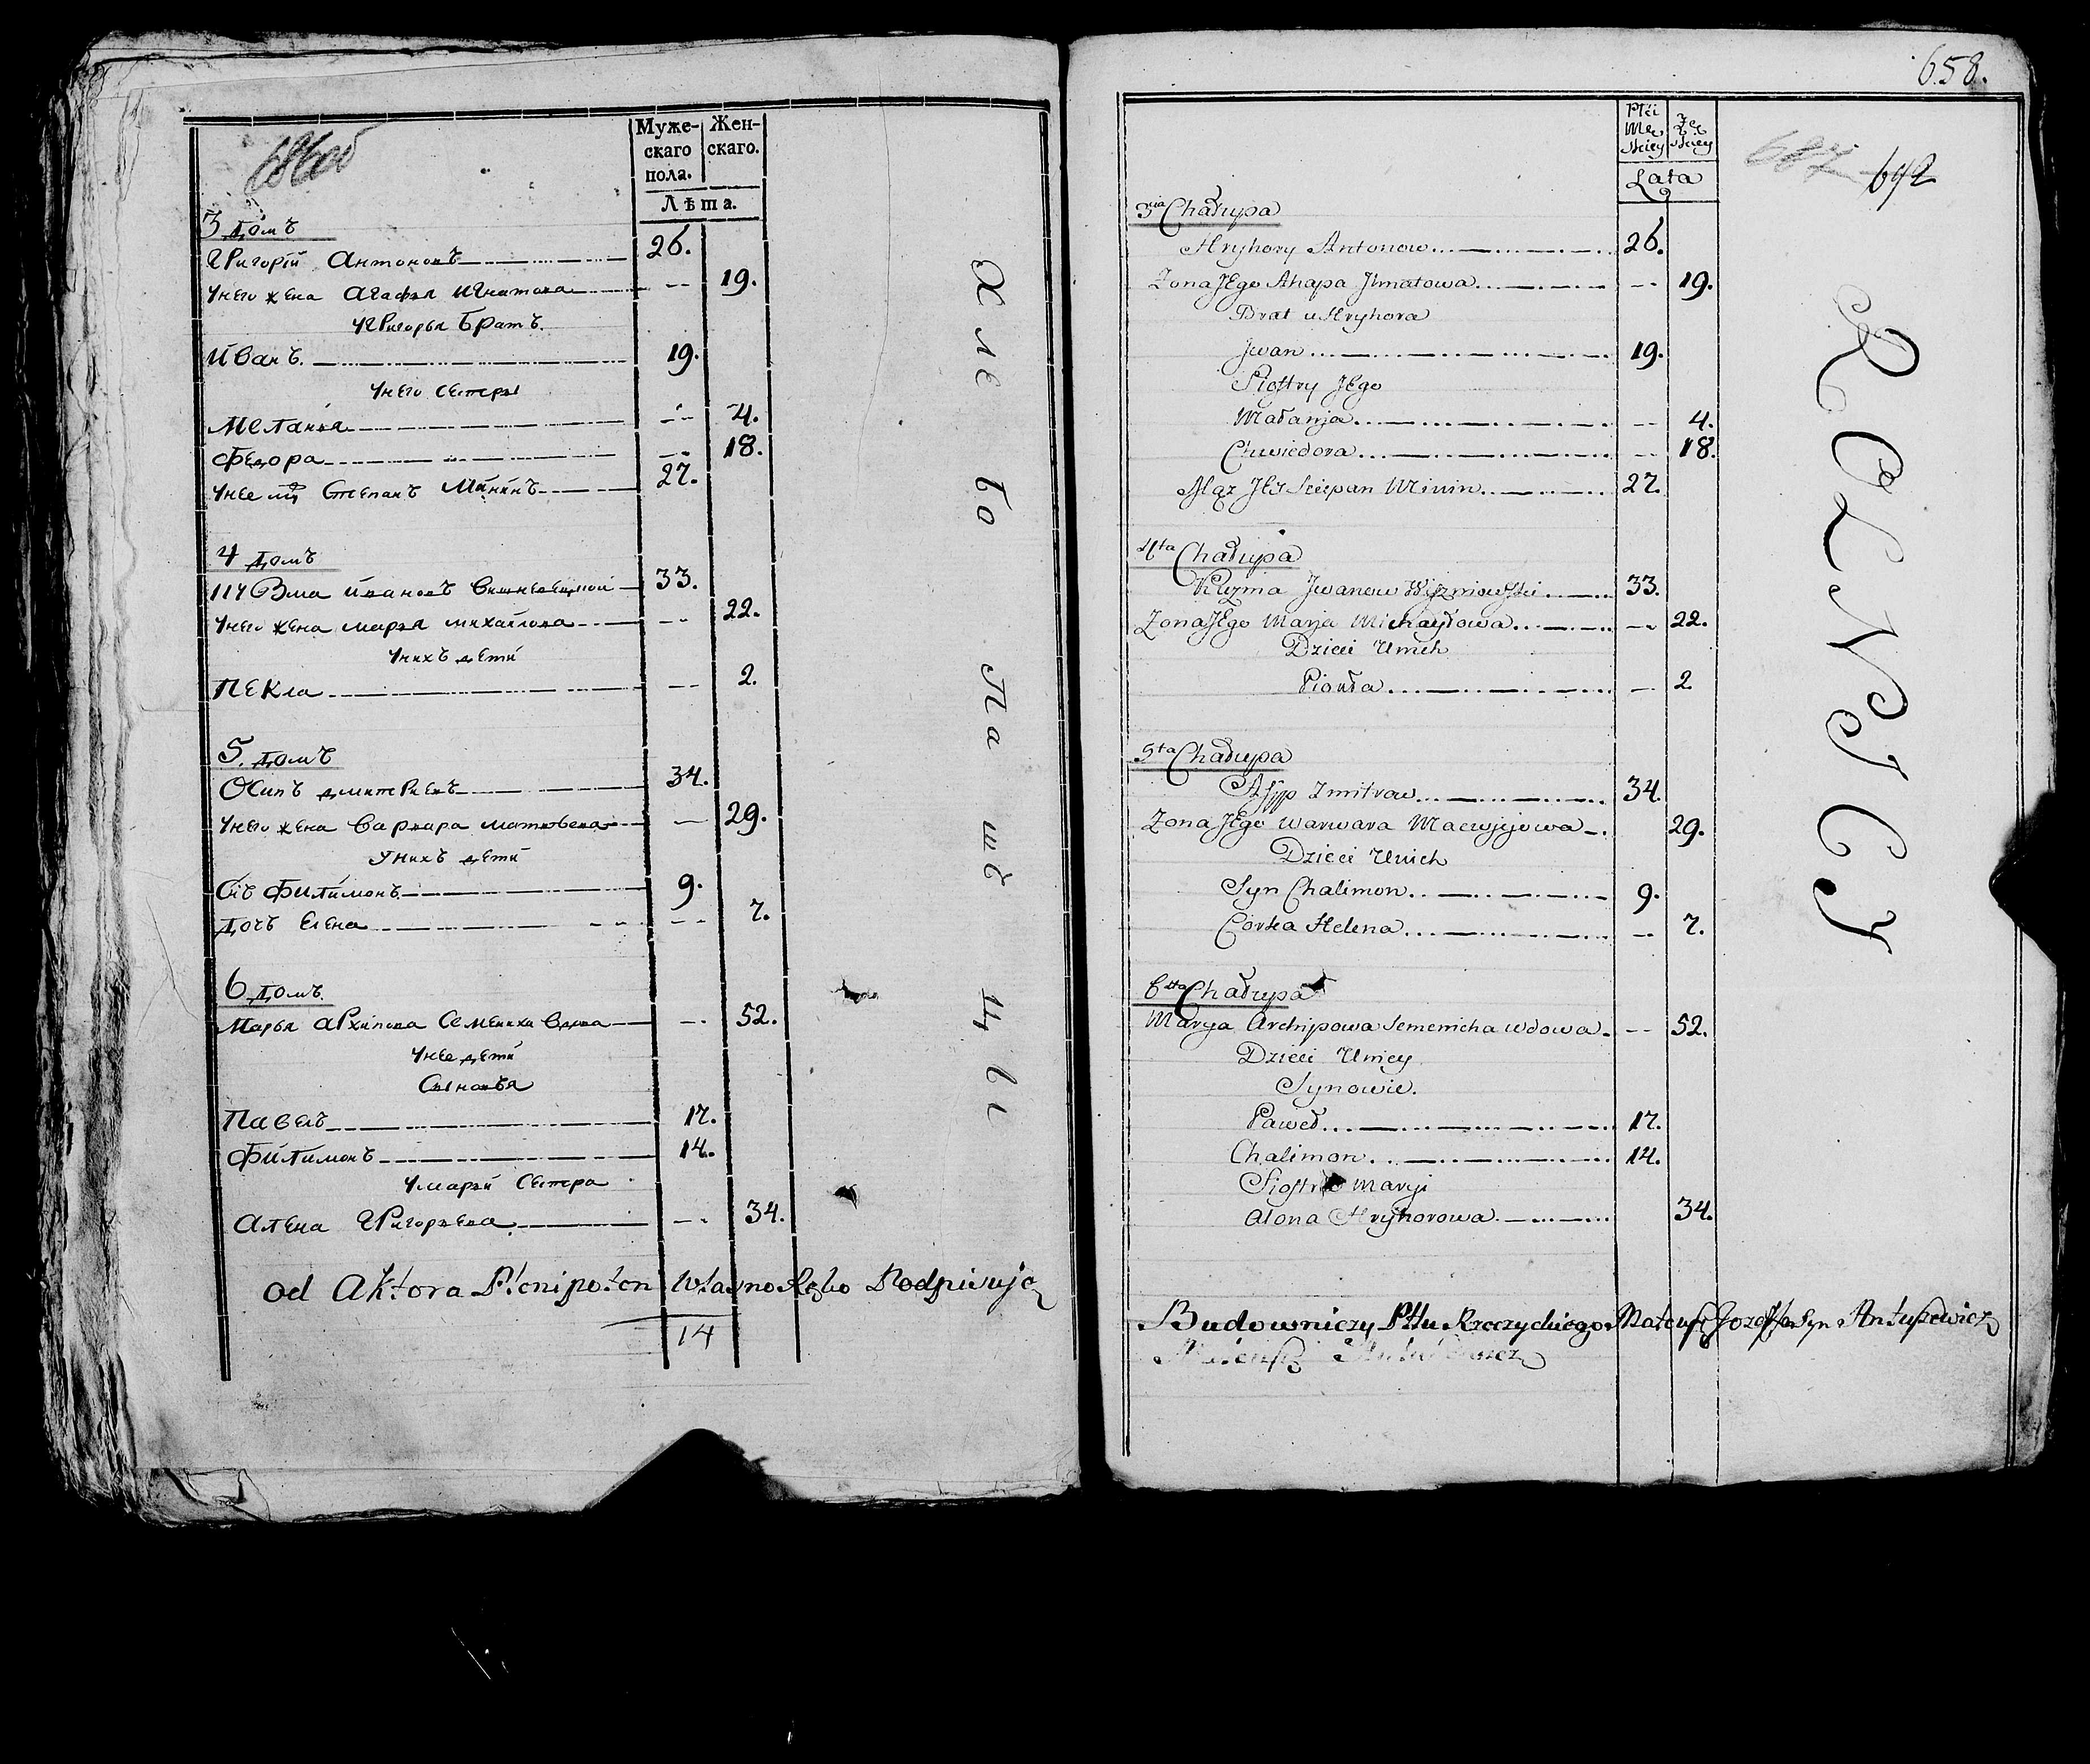 686об
Муже- Жен-
скаго скаго.
пола.
Лѣта.
3 домъ
Григорій Антоновъ 26.
Унего жена Агафья Игнатова -- 19.
У Григорья братъ
Иванъ 19.
Унего сестры
Меланья -- 4.
Федора -- 18.
Унее мѫ Степанъ Мининъ 27.
4 домъ
Кузма Ивановъ Вишневецкой 33.
Унего жена Марья Михайлова -- 22.
Унихъ дети
Пекла -- 2.
5. домъ
Осипъ Дмитріевъ 34.
Унего жена Варвара Матвѣева -- 29.
Унихъ дети
Сн̃ъ Филимонъ 9.
Дочь Елена -- 7.
6 домъ
Марья Архипова Семениха вдова -- 52.
Унее дети
Сыновья
Павелъ 17.
Филимонъ 14.
Умарьи сестра
Алена Григорьева -- 34.
Хлебопашцы
od Aktora Plenipoten Własno Ręko Podpisuję
14
658.
Płci Mę skiey Żeń skiey
Lata
687 642
3cia Chałupa
Hryhory Antonow 26.
Żona Jego Ahapa Jhnatowa -- 19.
Brat u Hryhora
Jwan 19.
Siostry Jego
Małanja -- 4.
Chwiedora -- 18.
Mąż Jey Sciepan Minin 27.
4ta Chałupa
Kuzma Jwanow Wiszniowski 33.
Żona Jego Marja Michayłowa -- 22.
Dzieci Unich
Piokła -- 2
5ta Chałupa
Asip Zmitrow 34.
Żona Jego Warwara Maciejowa 29.
Dzieci Unich
Syn Chalimon 9.
Corka Helena -- 7.
6ta Chałupa
Marya Archipowa Semenicha wdowa -- 52.
Dzieci Uniey
Synowie.
Paweł 17.
Chalimon 14.
Siostra Maryi
Alona Hryhorowa 34.
ROLNICY
Budowniczy Pttu Rzeczyckiego Mateusz Jozeffa Syn Antuszewicz